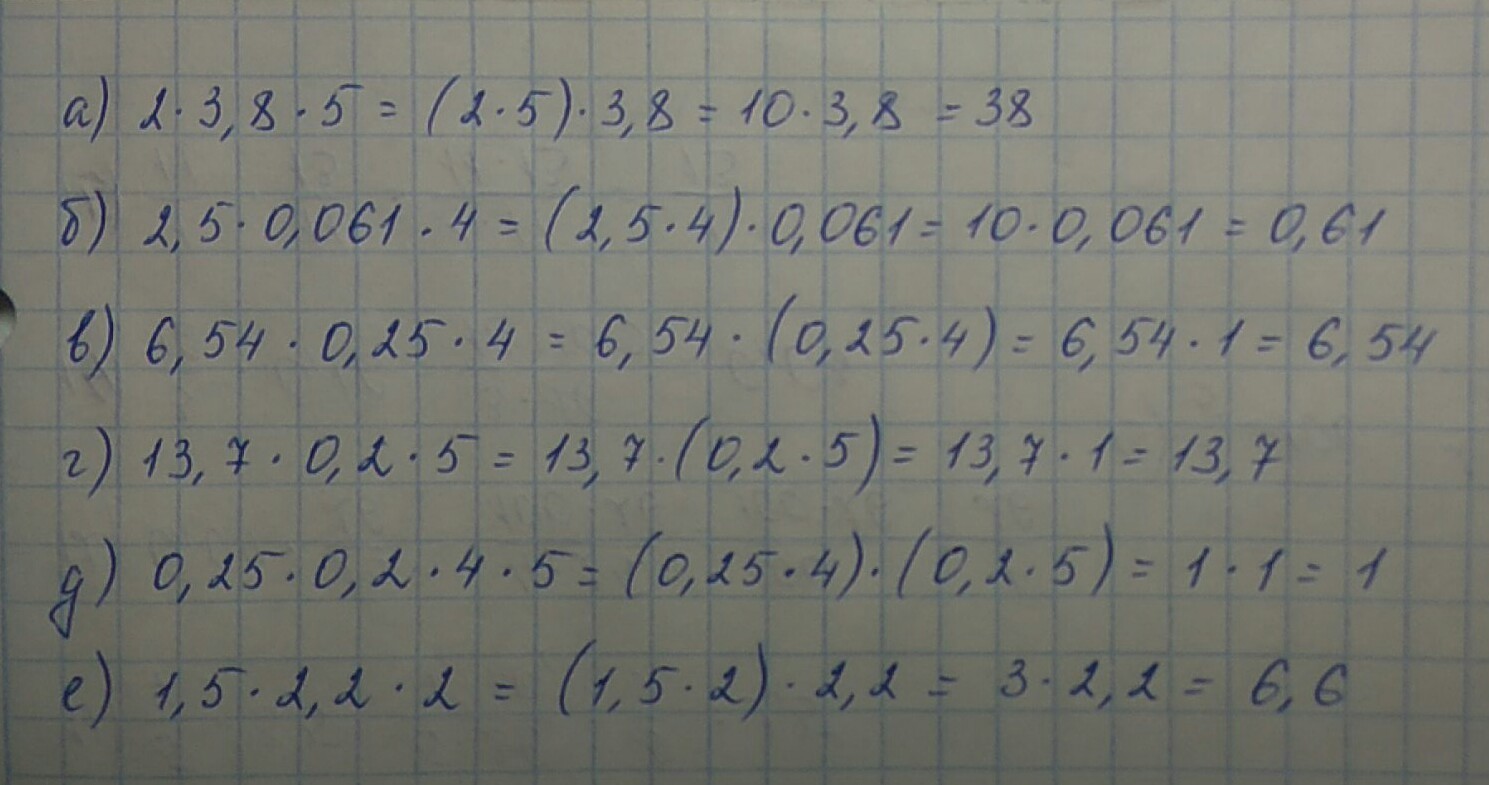 а) 2·3,8·5 = (2·5)·3,8 = 10·3,8 = 38
б) 2,5·0,061·4 = (2,5·4)·0,061 = 10·0,061 = 0,61
в) 6,54·0,25·4 = 6,54·(0,25·4) = 6,54·1 = 6,54
г) 13,7·0,2·5 = 13,7·(0,2·5) = 13,7·1 = 13,7
д) 0,25·0,2·4·5 = (0,25·4)·(0,2·5) = 1·1 = 1
е) 1,5·2,2·2 = (1,5·2)·2,2 = 3·2,2 = 6,6